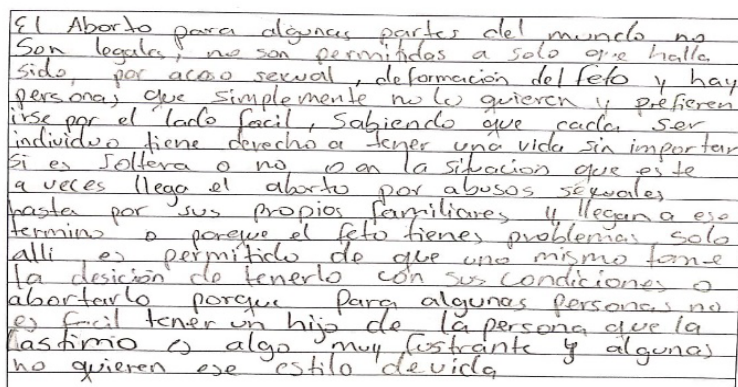 El Aborto para algunas partes del mundo no
Son legales, no son permitidos a solo que halla
sido, por acoso sexual, deformación del feto y hay
personas que simplemente no lo quieren y prefieren
irse por el lado facil, Sabiendo que cada ser
individuo tiene derecho a tener una vida sin importar
si es soltera o no o en la situacion que este
a veces llega el aborto por abusos sexuales
hasta por sus propios familiares y llegan a ese
termino o porque el feto tienes problemas solo
alli es permitido de que uno mismo tome
la desición de tenerlo con sus condiciones o
abortarlo porque para algunas personas no
es facil tener un hijo de la persona que la
lastimio es algo muy frustrante y algunas
no quieren ese estilo de vida